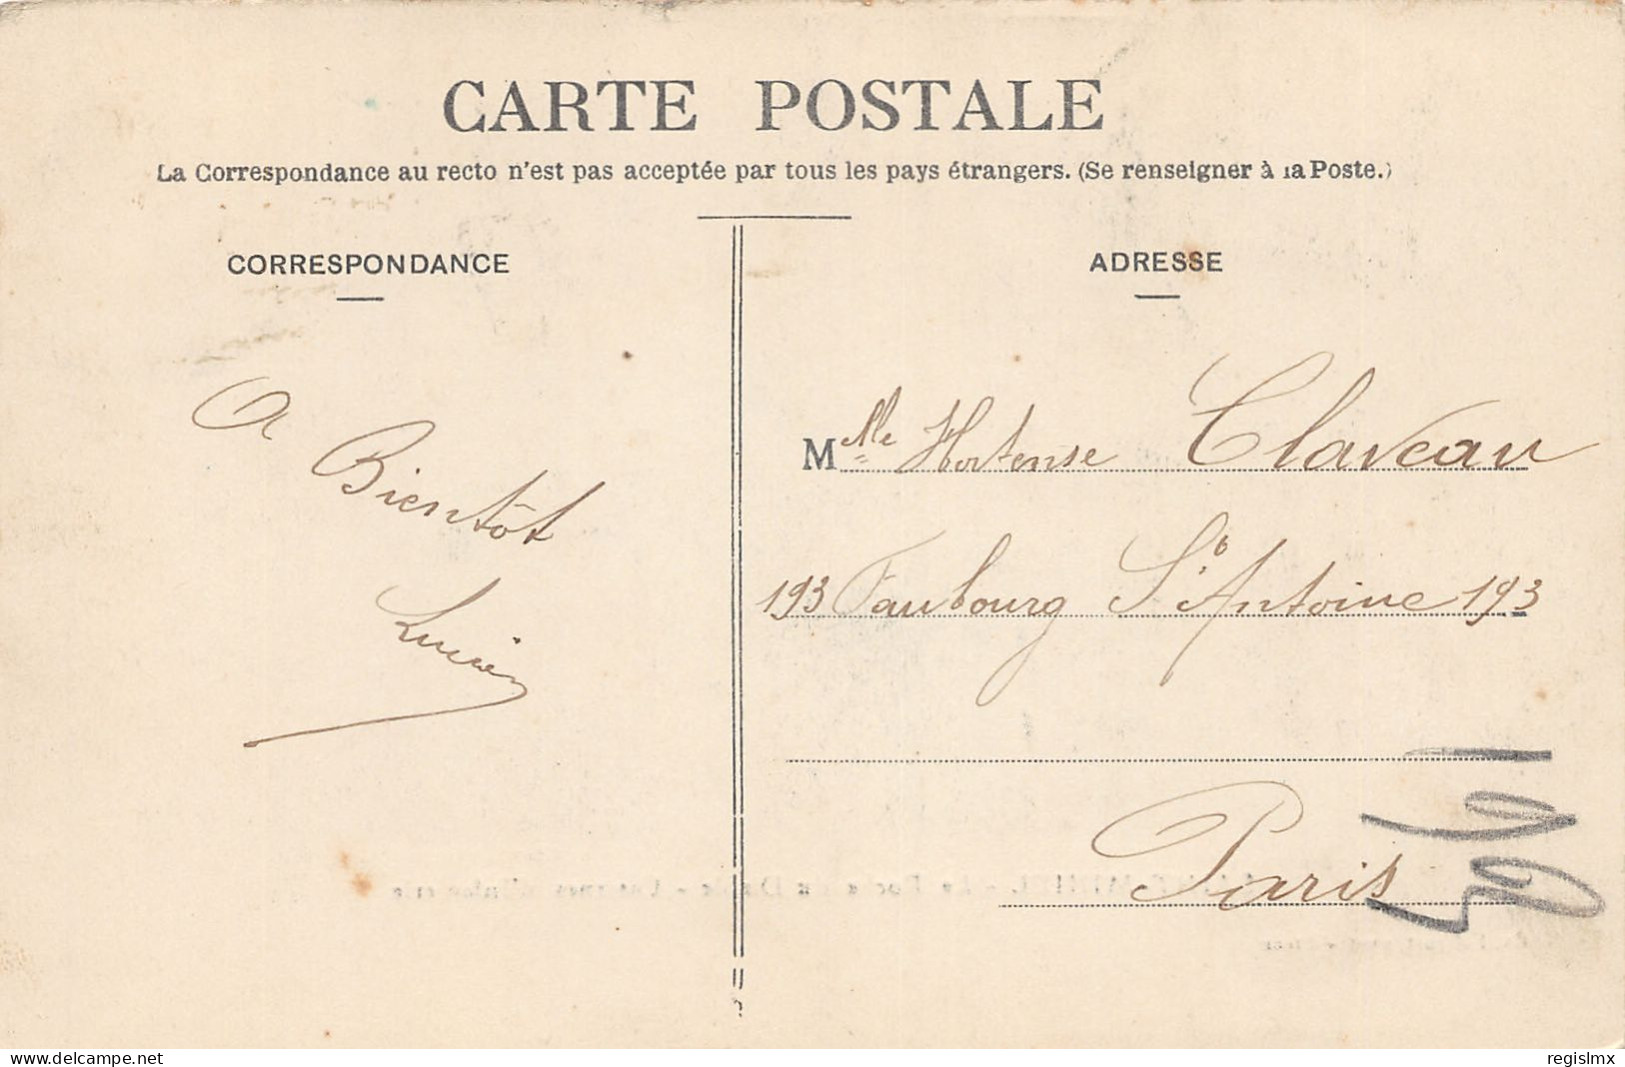 CARTE POSTALE
La Correspondance au recto n'est pas acceptée par tous les pays étrangers. (Se renseigner à la Poste.)
CORRESPONDANCE
A
Bientôt
Lucien
ADRESSE
Mlle Hortense Claveau
193 Faubourg St Antoine 193
Paris
delcampe.net
regislmx